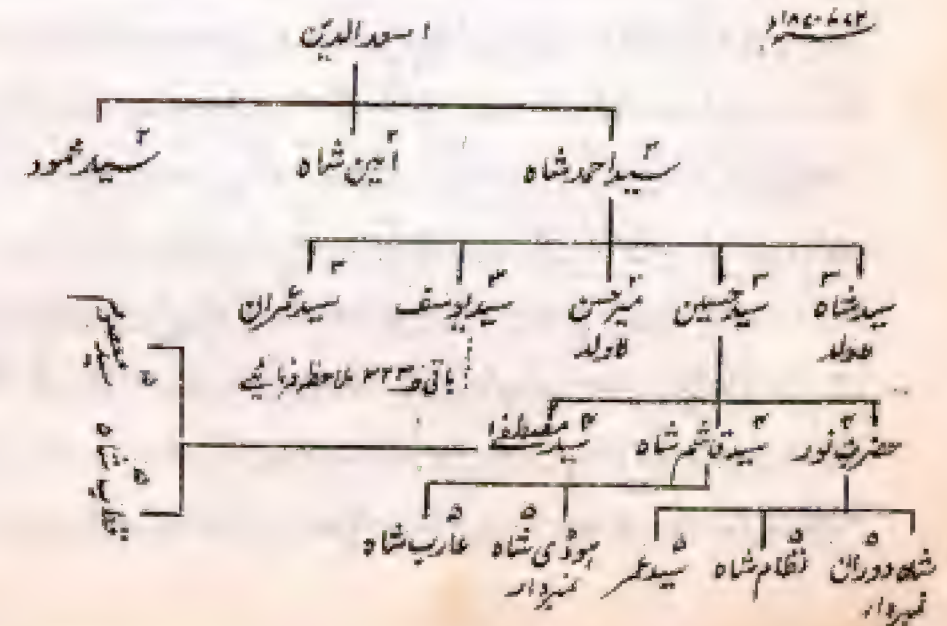 اسعدالدین
سید احمد شاہ ۲
امین شاہ ۲
سید محمود ۲
سید شاہ ۳
لاولد
سید حسین ۳
میر حسن ۳
لاولد
سید یوسف ۳
سید عمران ۳
باقی ص ۳۲۳ ملاحظہ فرمائیے
حضرت نور ۴
سید قاسم شاہ ۴
سید مصطفےٰ ۴
شاہ دوران ۵
نمبردار
نظام شاہ ۵
سید عمر ۵
۵
نمبردار
عارب شاہ ۵
۵
۵